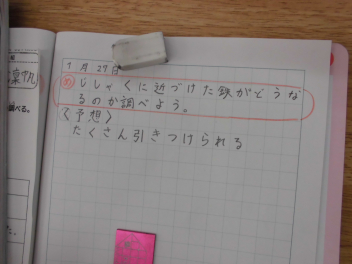 1月27日
め じしゃくに近づけた鉄がどうな
るのか調べよう。
〈予想〉
たくさん引きつけられる
べる。